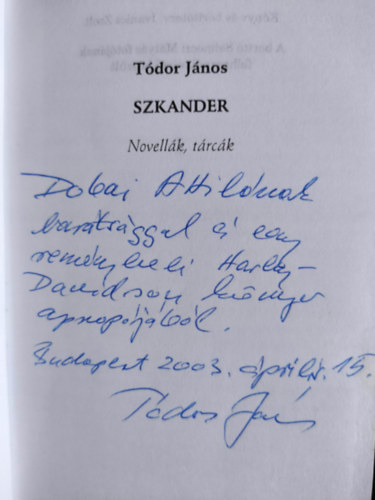 Tódor János
SZKANDER
Novellák, tárcák
Dobai Attilának
barátsággal és egy
reménybeli Harley-
Davidson könyv
apropójából.
Budapest 2003. április 15.
Tódor János